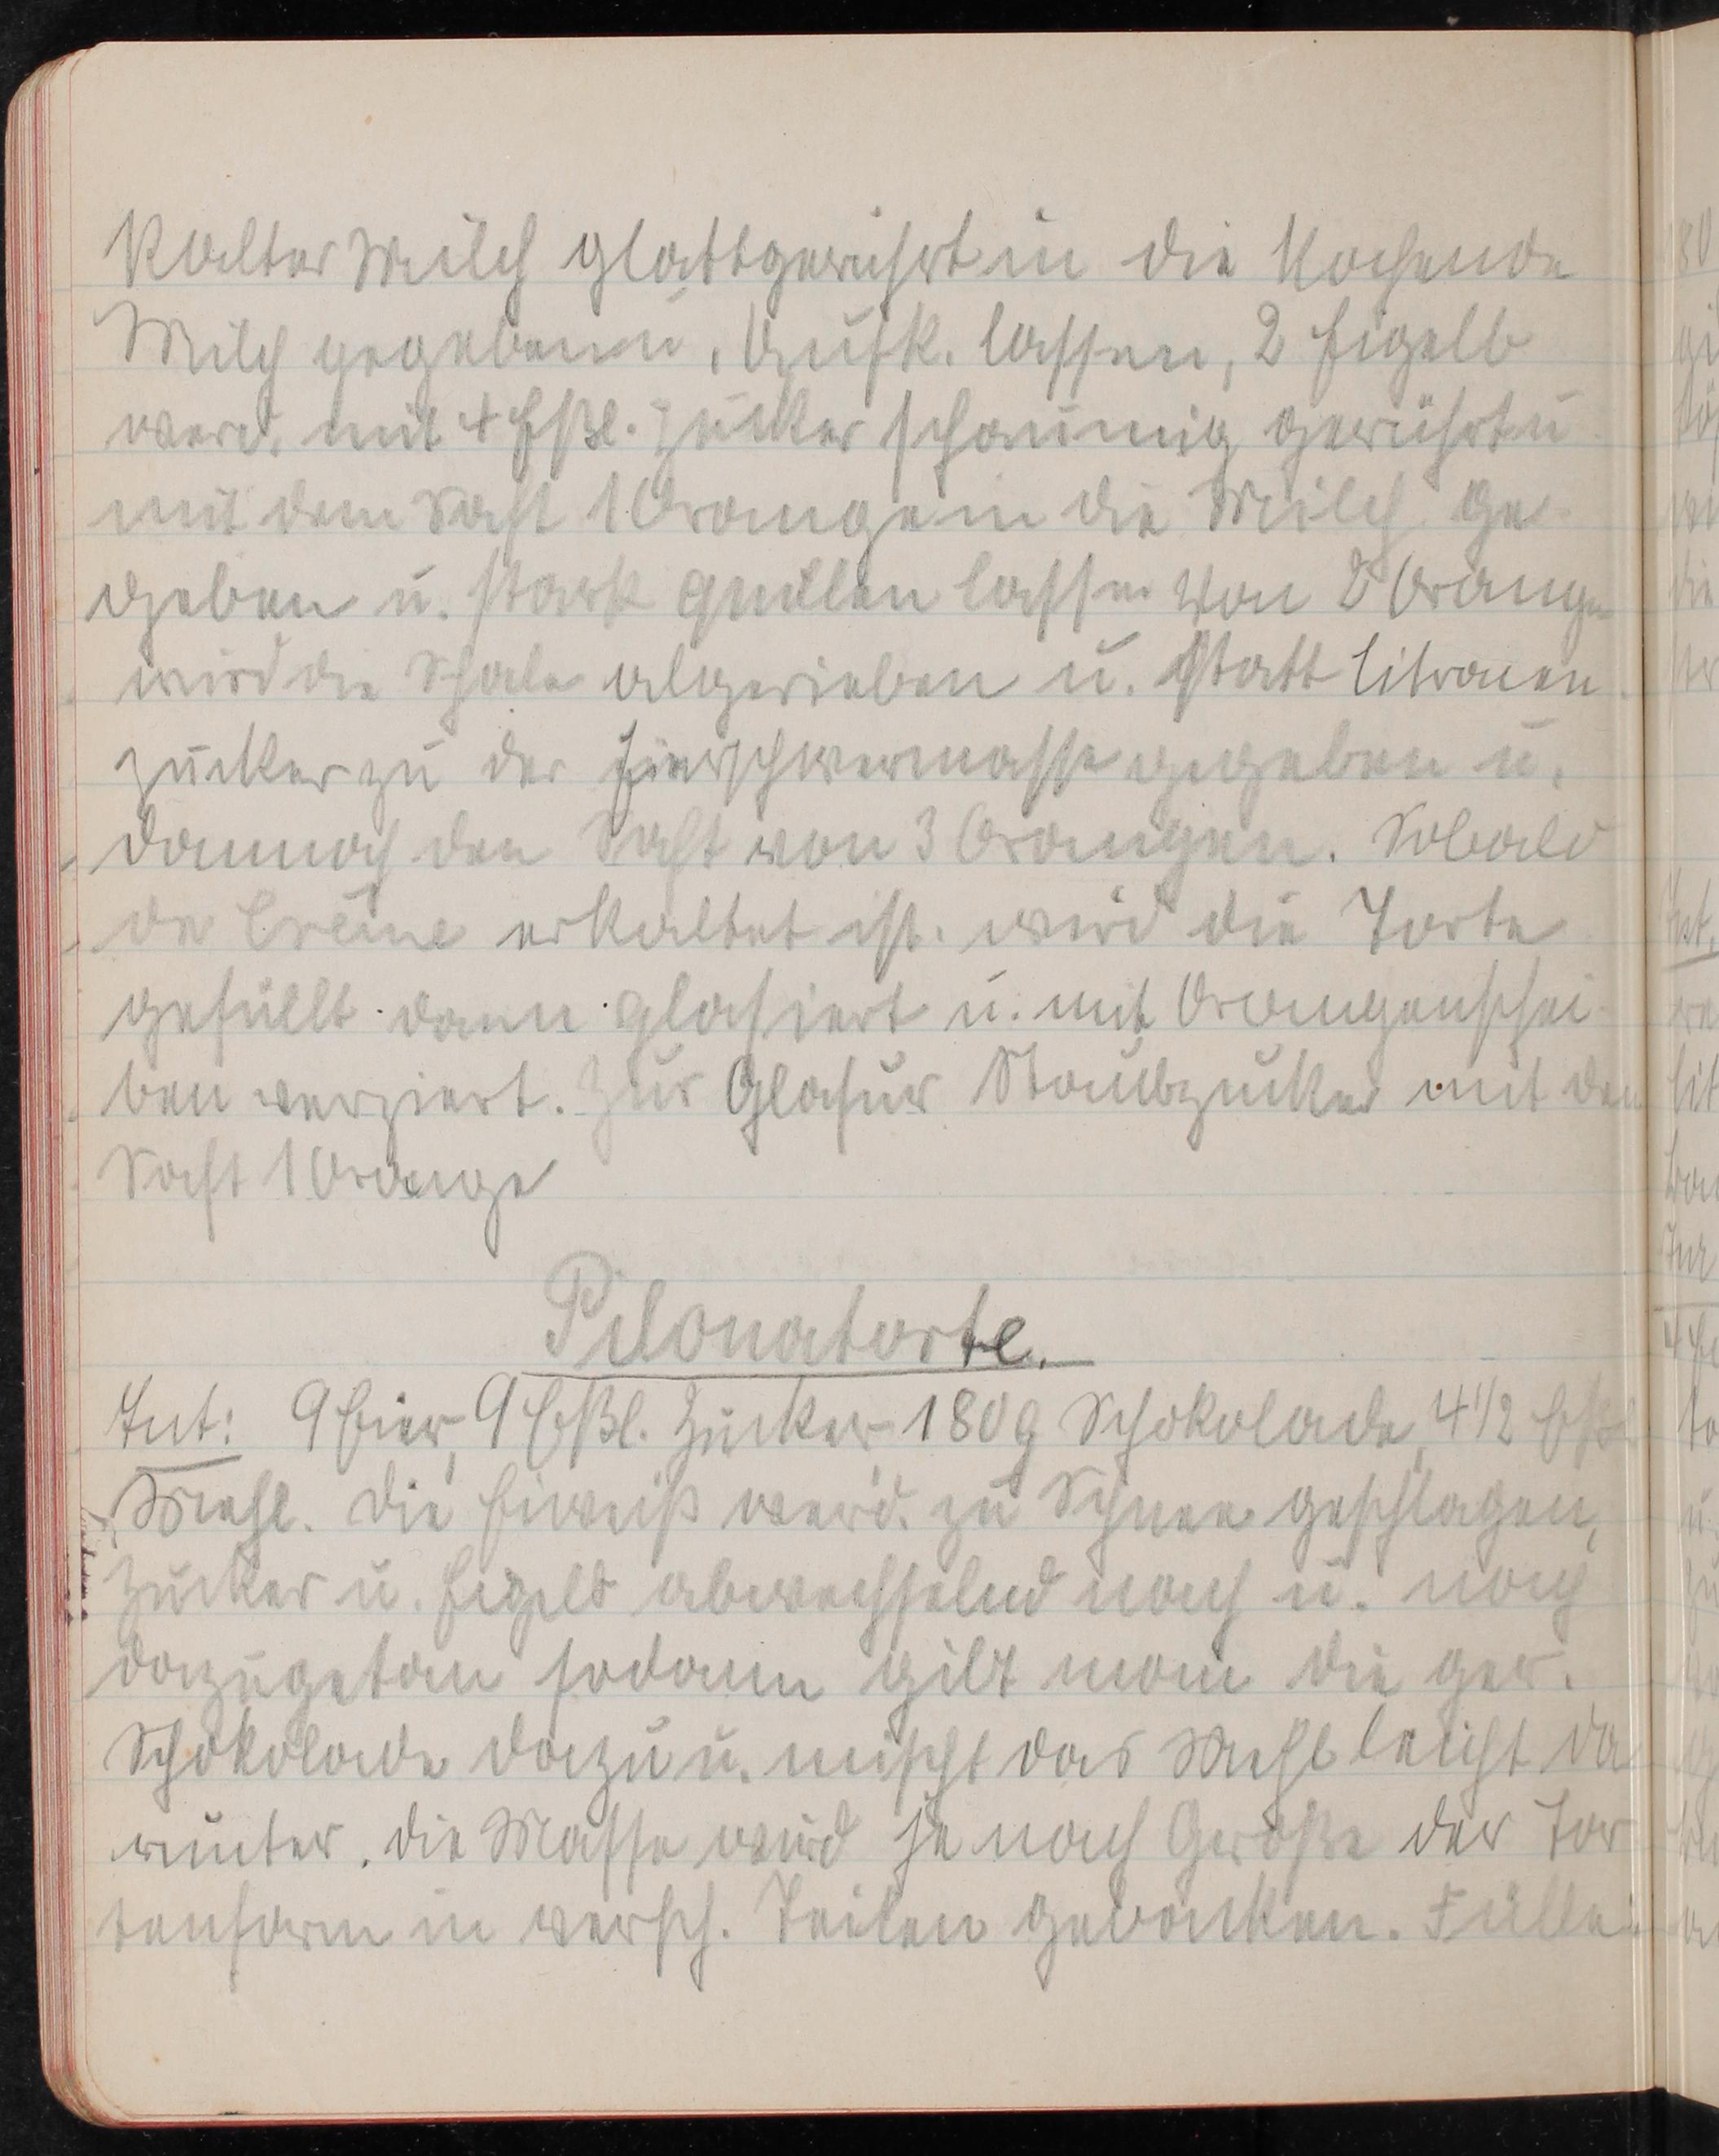 kalter Milch glattgerührt in die kochende
Milch gegeben u. aufk. lassen, 2 Eigelb
werd. mit 4 Eßl. Zucker schaumig gerührt u
mit dem Saft 1 Orange in die Milch ge-
geben u. stark quellen lassen Von 2 Orangen
wird die Schale abgerieben u. statt Citronen
zucker zu der gegeben u.
dannach den Saft von 3 Orangen. Sobald
die Crême erkaltet ist. wird die Torte
gefüllt dann glasiert u. mit Orangenschei-
ben verziert. Zur Glasur Staubzucker mit dem
Saft 1 Orange
Pilonatorte.
Zut: 9 Eier, 9 Eßl. Zucker 180 g Schokolade, 4 1/2 Eßl
Mehl. Die Eiweiß werd. zu Schnee geschlagen,
Zucker u. Eigelb abwechselnd nach u. nach
dazugetan sodann gibt man die ger.
Schokolade dazu u. mischt das Mehl leicht da
runter. die Masse wird je nach Größe der Tor
tenform in versch. Teilen gebacken. Füllen